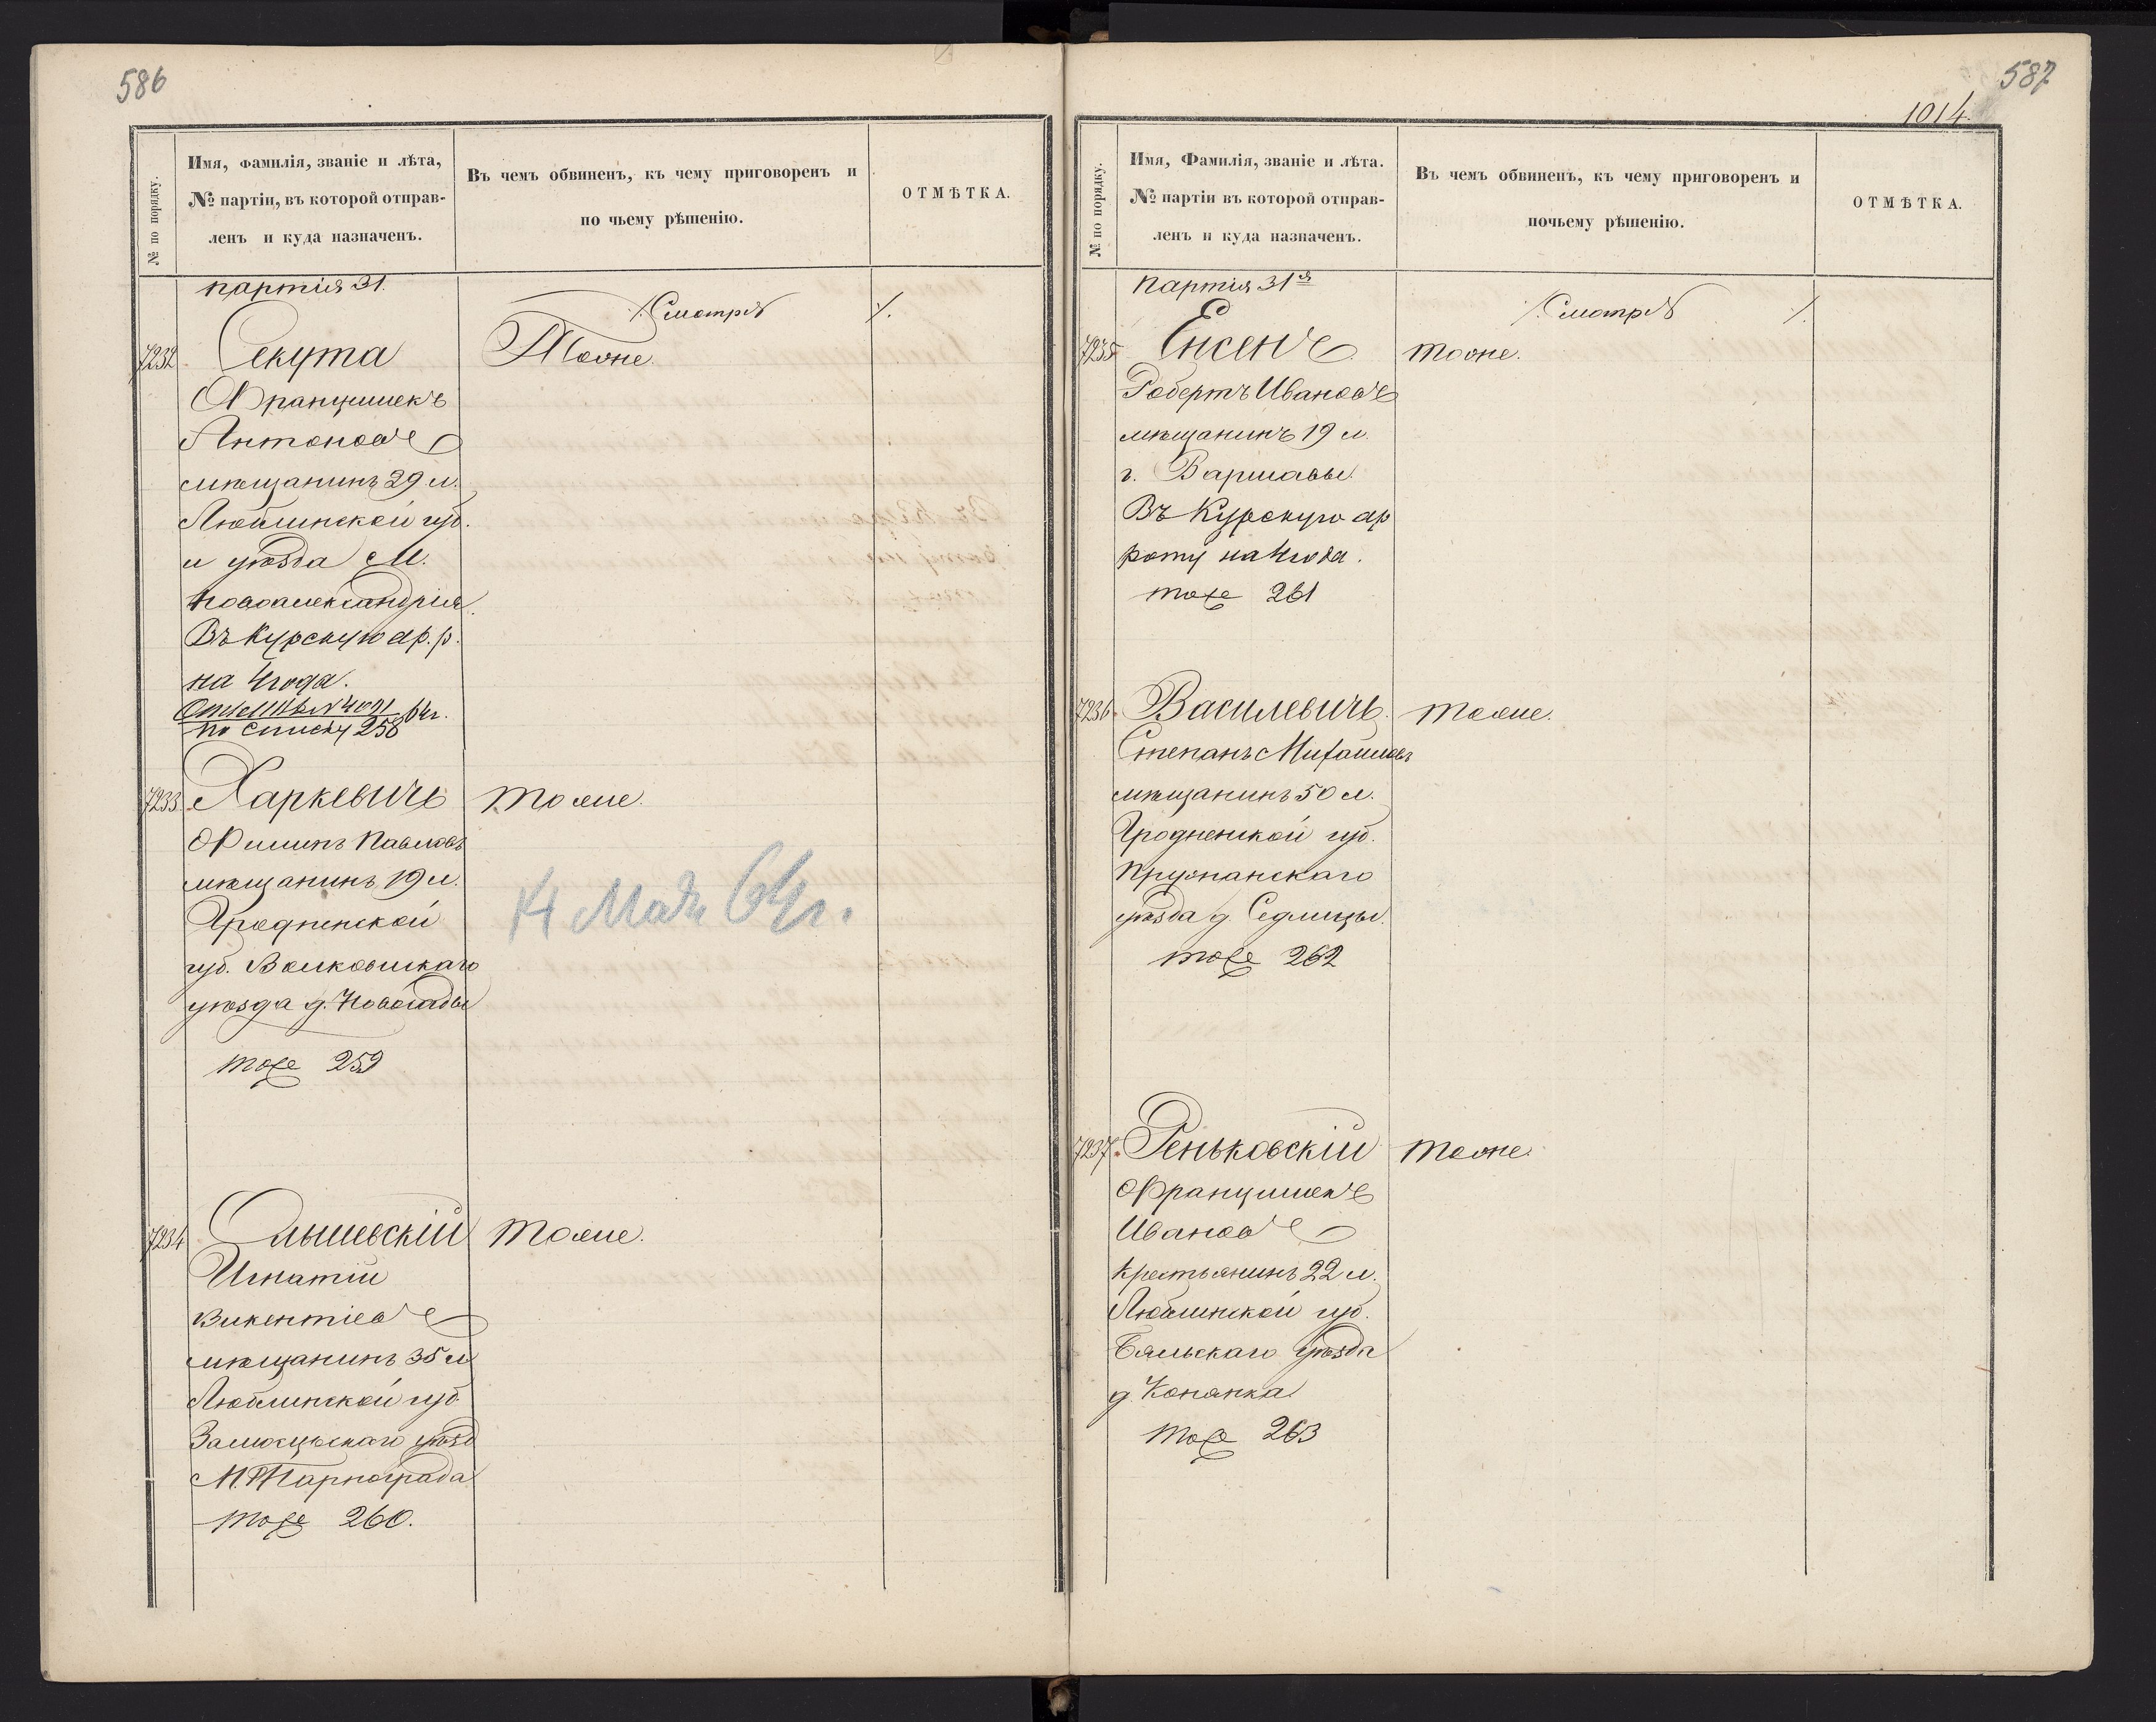 586
№ по порядку.
Имя, фамилія, званіе и лѣта,
№ партіи, въ которой отправ-
ленъ и куда назначенъ.
Въ чемъ обвиненъ, къ чему приговоренъ и
по чьему рѣшенію.
ОТМѢТКА.
партія 31.
/. Смотрѣ /.
7232. Секута Тоже.
Францишекъ
Антоновъ
мѣщанинъ 29 л.
Люблинской губ.
и уѣзда М.
Новоалександрія
Въ Курскую ар. р.
на 4 года.
№ 4091 64 г.
по списку 258
7233. Харкевичъ тоже.
Филипъ Павловъ
мѣщанинъ 19 л.
Гродненской
губ. Волковискаго
уѣзда д.
тоже 259
14 Мая 64 г.
7234 Слышевскій тоже.
Игнатій
Викентіевъ
мѣщанинъ 35 л
Люблинской губ.
Замосцьскаго уѣзд
М. Тарнограда
тоже 260.
587
1014.
№ по порядку.
Имя, Фамилія, званіе и лѣта.
№ партіи въ которой отправ-
ленъ и куда назначенъ.
Въ чемъ обвиненъ, къ чему приговоренъ и
почьему рѣшенію.
ОТМѢТКА.
партія 31я
/. Смотрѣ /.
7235. Енсенъ тоже.
Робертъ Ивановъ
мѣщанинъ 19 л.
г. Варшавы.
Въ Курскую ар
роту на 4 года.
тоже 261
7236. Василевичъ тоже.
Степанъ Михайловъ
мѣщанинъ 50 л.
Гродненской губ.
Пружанскаго
уѣзда д. Седлицы.
тоже 262
7237. Реньковскій тоже.
Францишекъ
Ивановъ
крестьянинъ 22 л.
Люблинской губ.
Бяльскаго уѣзда
д. Конанка
тоже 263